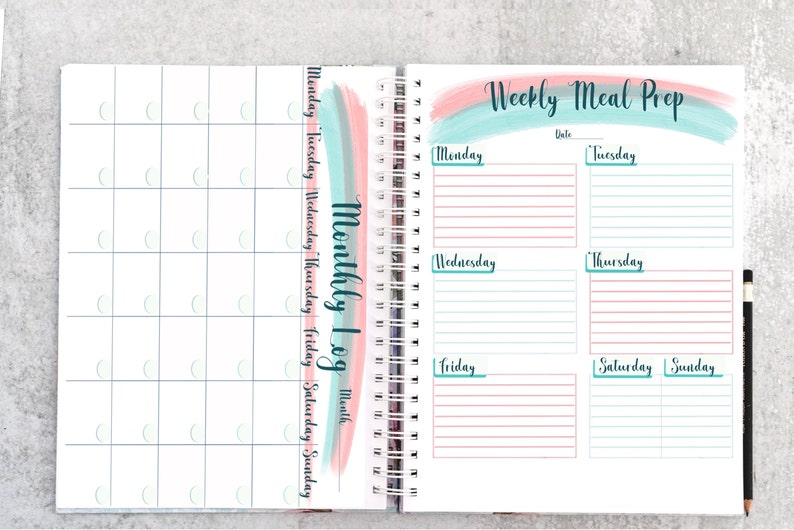 Monthly Log
Month
Monday Tuesday Wednesday Thursday Friday Saturday Sunday
Weekly Meal Prep
Date
Monday
Tuesday
Wednesday
Thursday
Friday
Saturday
Sunday